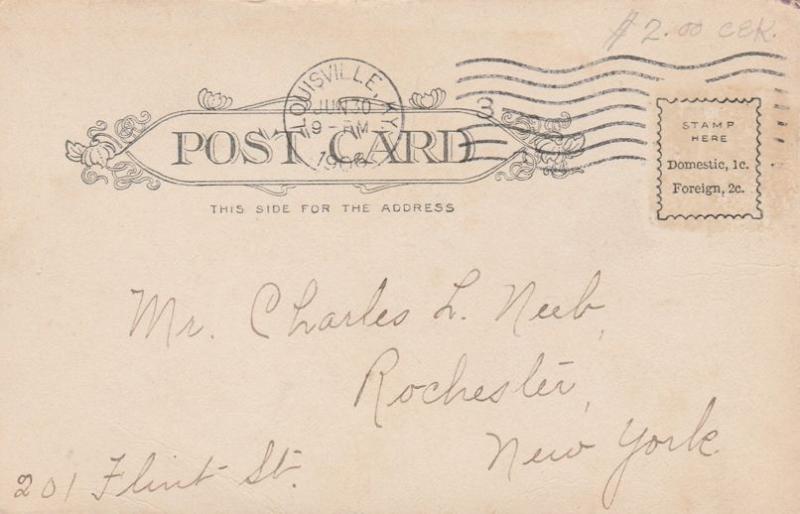 $2.00 CEK.
LOUISVILLE, KY.
JUN 30
9 - AM
1906
3
POST CARD
THIS SIDE FOR THE ADDRESS
STAMP
HERE
Domestic, 1c.
Foreign, 2c.
Mr. Charles L. Neeb,
Rochester,
New York
201 Flint St.